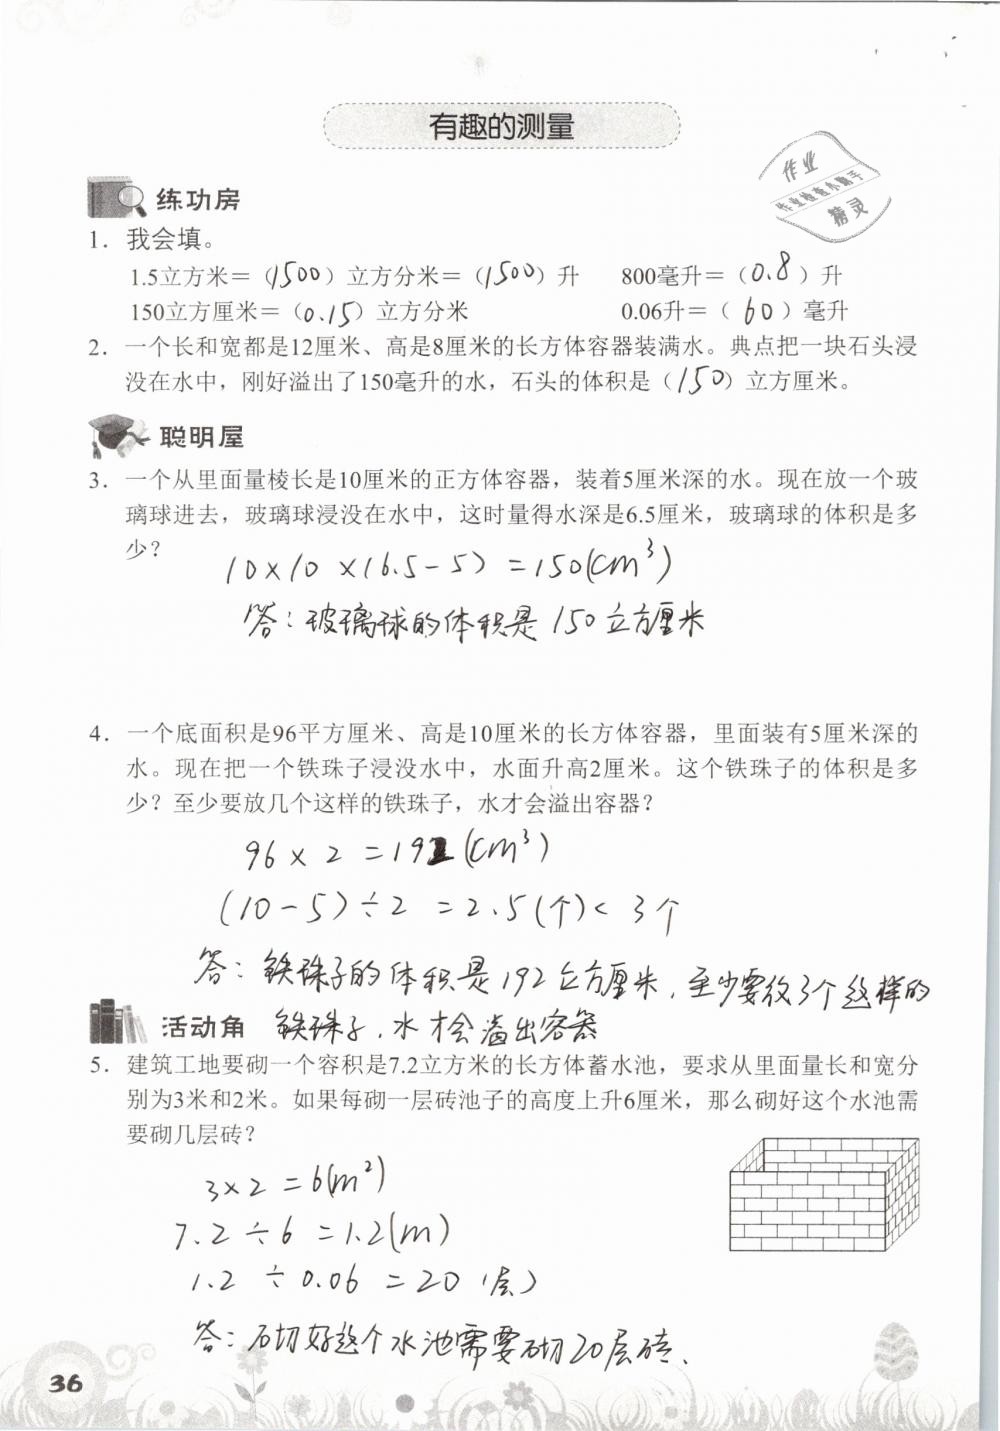 有趣的测量
作业
作业检查小助手
精灵
练功房
1. 我会填。
1.5立方米=(1500)立方分米=(1500)升 800毫升=(0.8)升
150立方厘米=(0.15)立方分米 0.06升=(60)毫升
2. 一个长和宽都是12厘米、高是8厘米的长方体容器装满水。典点把一块石头浸
没在水中，刚好溢出了150毫升的水，石头的体积是(150)立方厘米。
聪明屋
3. 一个从里面量棱长是10厘米的正方体容器，装着5厘米深的水。现在放一个玻
璃球进去，玻璃球浸没在水中，这时量得水深是6.5厘米，玻璃球的体积是多
少?
10×10×(6.5-5)=150(cm³)
答：玻璃球的体积是150立方厘米
4. 一个底面积是96平方厘米、高是10厘米的长方体容器，里面装有5厘米深的
水。现在把一个铁珠子浸没水中，水面升高2厘米。这个铁珠子的体积是多
少？至少要放几个这样的铁珠子，水才会溢出容器？
96×2=192(cm³)
(10-5)÷2=2.5(个)<3个
答：铁珠子的体积是192立方厘米，至少要放3个这样的
铁珠子，水才会溢出容器
活动角
5. 建筑工地要砌一个容积是7.2立方米的长方体蓄水池，要求从里面量长和宽分
别为3米和2米。如果每砌一层砖池子的高度上升6厘米，那么砌好这个水池需
要砌几层砖？
3×2=6(m²)
7.2÷6=1.2(m)
1.2÷0.06=20(层)
答：砌好这个水池需要砌20层砖、
36